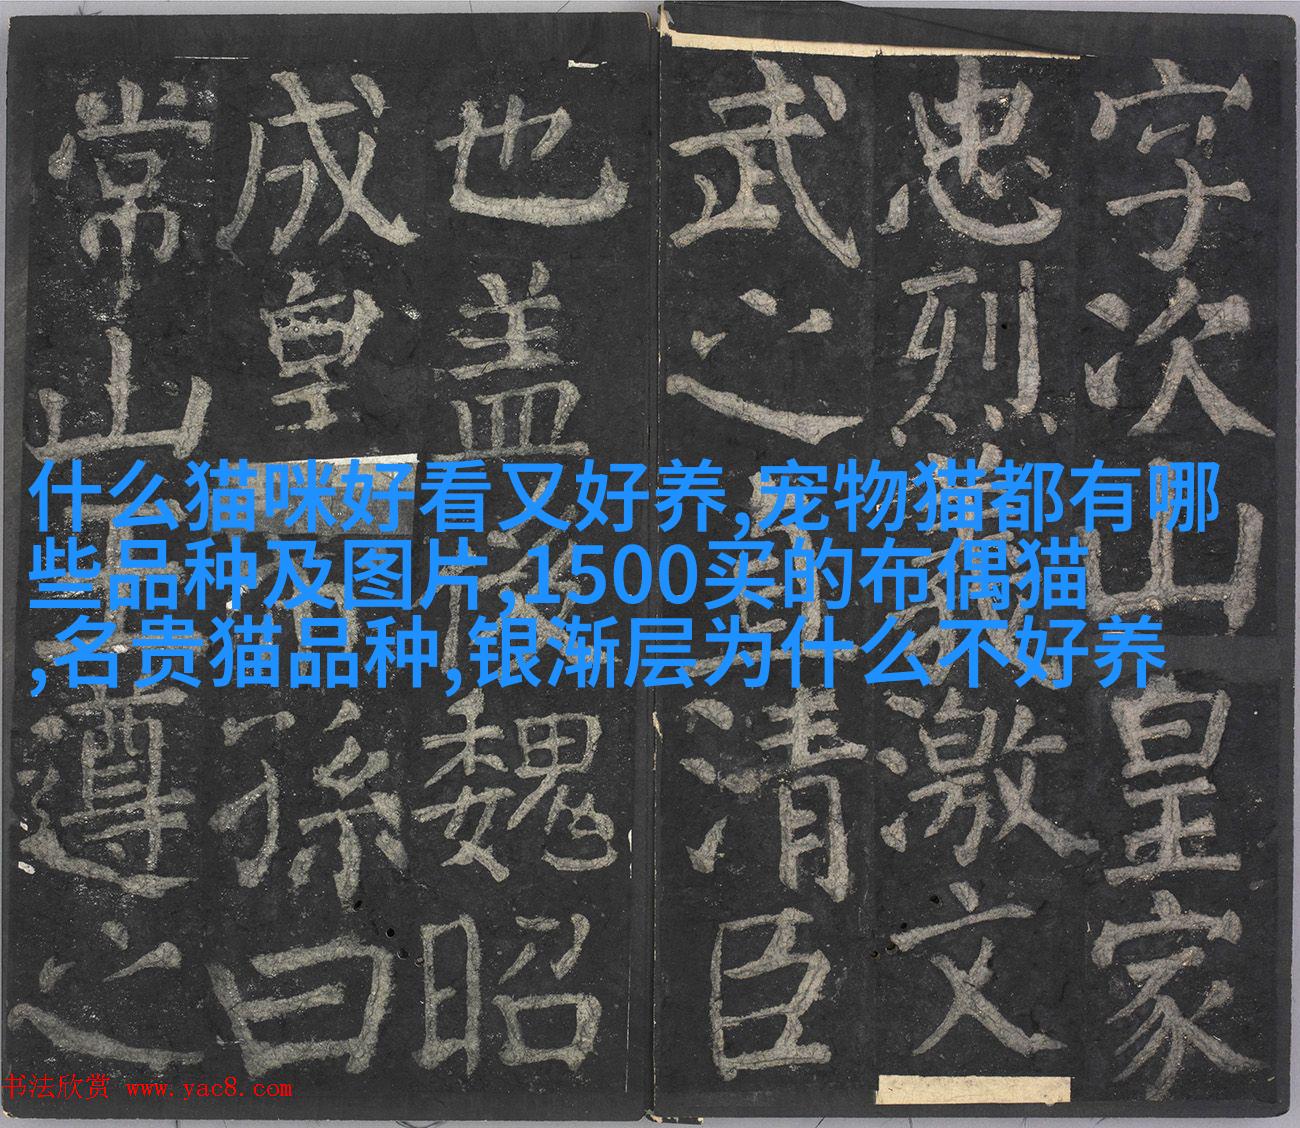 字次山皇家
忠烈義激文
武之清臣
也盖魏昭
成皇孫曰
常山遵之
什么猫咪好看又好养,宠物猫都有哪
些品种及图片,1500买的布偶猫
,名贵猫品种,银渐层为什么不好养
书法欣赏 www.yac8.com